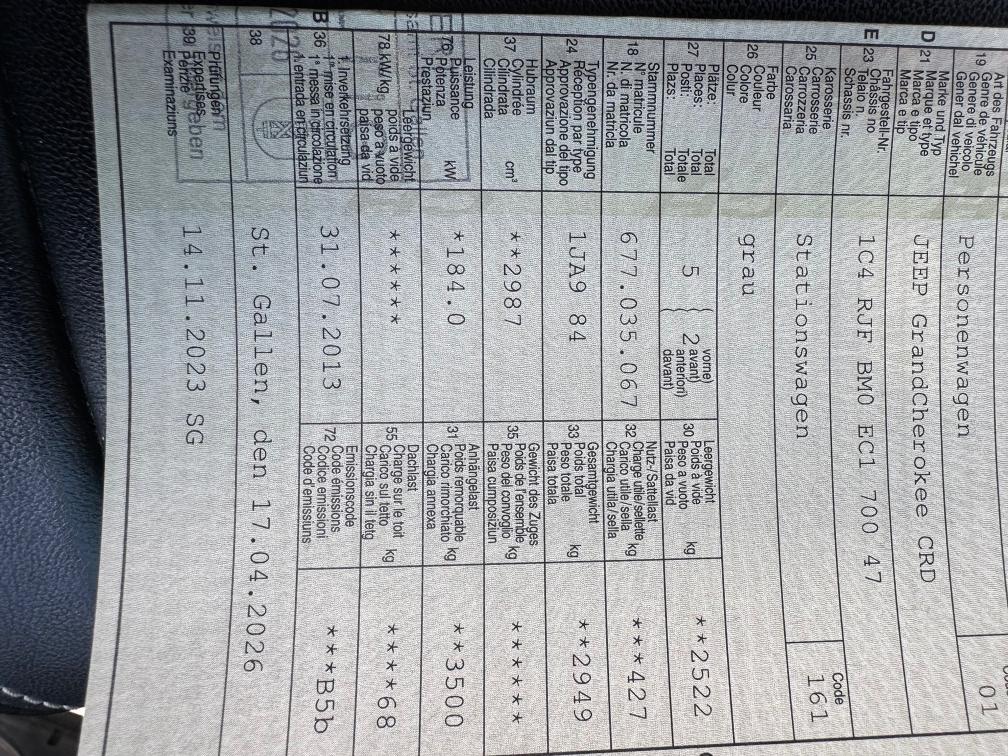 19 Art des Fahrzeugs
Genre de véhicule
Genere di veicolo
Gener da vehichel
Personenwagen
Code
01
D 21 Marke und Typ
Marque et type
Marca e tipo
Marca e tip
JEEP GrandCherokee CRD
E 23 Fahrgestell-Nr.
Châssis no
Telaio n.
Schassis nr.
1C4 RJF BM0 EC1 700 47
25 Karosserie
Carrosserie
Carrozzeria
Carossaria
Stationswagen
Code
161
26 Farbe
Couleur
Colore
Colur
grau
27 Plätze: Total
Places: Total
Posti: Totale
Plazs: Total
5
2
vorne)
avant)
anteriori)
davant)
30 Leergewicht
Poids à vide
Peso a vuoto
Paisa da vid kg
**2522
18 Stammnummer
N° matricule
N. di matricola
Nr. da matricla
677.035.067
32 Nutz-/Sattellast
Charge utile/sellette
Carico utile/sella
Chargia utila/sella kg
***427
24 Typengenehmigung
Réception par type
Approvazione del tipo
Approvaziun dal tip
1JA9 84
33 Gesamtgewicht
Poids total
Peso totale
Paisa totala kg
**2949
37 Hubraum
Cylindrée
Cilindrata
Cilindrada cm³
**2987
35 Gewicht des Zuges
Poids de l'ensemble
Peso del convoglio
Paisa cumposiziun kg
******
76 Leistung
Puissance
Potenza
Prestaziun kW
*184.0
31 Anhängelast
Poids remorquable
Carico rimorchiato
Chargia annexa kg
**3500
78 kW/kg
Leergewicht
poids à vide
peso a vuoto
paisa da vid
******
55 Dachlast
Charge sur le toit
Carico sul tetto
Chargia sin il tetg kg
****68
B 36 1. Inverkehrsetzung
1re mise en circulation
1a messa in circolazione
1. entrada en circulaziun
31.07.2013
72 Emissionscode
Code émissions
Codice emissioni
Code d'emissiuns
***B5b
38
St. Gallen, den 17.04.2026
39 Prüfungen
Expertises
Perizie
Examinaziuns
14.11.2023 SG